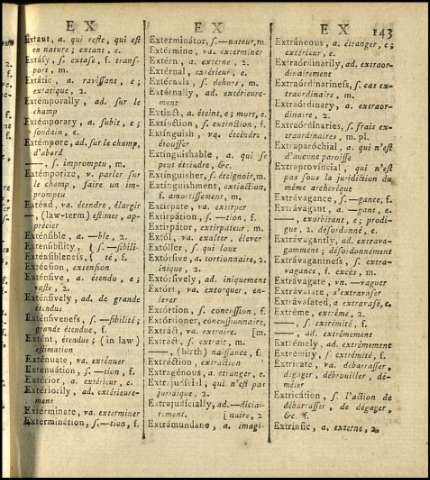 EX
EX
EX 143
Extant, a. qui reste, qui est
en nature; extant, e.
Extasy, s. extase, f. trans-
port, m.
Extatic, a. ravissant, e;
extatique, 2.
Extémporally, ad. sur le
champ
Extémporary, a. subit, e;
soudain, e.
Extémpore, ad. sur le champ,
d'abord
—, s. impromptu, m.
Extémporize, v. parler sur
le champ, faire un im-
promptu
Exténd, va. étendre, élargir
—, (law-term) estimer, ap-
précier
Exténsible, a. —ble, 2.
Exténsibility, { s. —sibili-
Exténsibleness, { té, f.
Exténsion, extension
Exténsive, a. étendu, e;
vaste, 2.
Exténsively, ad. de grande
étendue
Exténsiveness, s. —sibilité;
grande étendue, f.
Extént, étendue; (in law)
estimation
Exténuate, va. exténuer
Extenuation, s. —tion, f.
Extérior, a. extérieur, e.
Extériorily, ad. extérieure-
ment
Extérminate, va. exterminer
Extermination, s. —tion, f.
Extérminator, s. —nateur, m.
Extérmine, va. exterminer
Extérn, a. externe, 2.
Extérnal, extérieur, e.
Extérnals, s. dehors, m.
Extérnally, ad. extérieure-
ment
Extinct, a. éteint, e; mort, e.
Extinction, s. extinction, f.
Extínguish, va. éteindre,
étouffer
Extínguishable, a. qui se
peut éteindre, &c.
Extínguisher, s. éteignoir, m.
Extínguishment, extinction,
f. amortissement, m.
Extírpate, va. extirper
Extirpátion, s. —tion, f.
Extirpátor, extirpateur, m.
Extól, va. exalter, élever
Extóller, s. qui loue
Extórsive, a. tortionnaire, 2.
inique, 2.
Extórsively, ad. iniquement
Extórt, va. extorquer, en-
lever
Extórtion, s. concussion, f.
Extórtioner, concussionnaire,
Extráct, va. extraire [m.
Extract, s. extrait, m.
—, (birth) naissance, f.
Extráction, extraction
Extragénous, a. étranger, e.
Extrajudicial, qui n'est pas
juridique, 2.
Extrajudicially, ad. —diciai-
rement. [naire, 2
Extramúndane, a. imagi-
Extráneous, a. étranger, e;
extérieur, e.
Extraórdinarily, ad. extraor-
dinairement
Extraórdinariness, s. cas ex-
traordinaire, m.
Extraórdinary, a. extraor-
dinaire, 2.
Extraórdinaries, s. frais ex-
traordinaires, m. pl.
Extraparóchial, a. qui n'est
d'aucune paroisse
Extraprovíncial, qui n'est
pas sous la juridiction du
même archevêque
Extrávagance, s. —gance, f.
Extrávagant, a. —gant, e.
—, exorbitant, e; prodi-
gue, 2. désordonné, e.
Extrávagantly, ad. extrava-
gamment; désordonnément
Extrávagantness, s. extra-
vagance, f. excès, m.
Extrávagate, vn. —vaguer
Extrávasate, s'extravaser
Extrávasated, a. extravasé, e.
Extréme, extrême, 2.
—, s. extrémité, f.
—, ad. extrêmement
Extrémely, ad. extrêmement
Extrémity, s. extrémité, f.
Extricate, va. débarasser,
dégager, débrouiller, dé-
mêler
Extrication, s. l'action de
débarasser, de dégager,
&c. f.
Extrínsic, a. externe, 2.